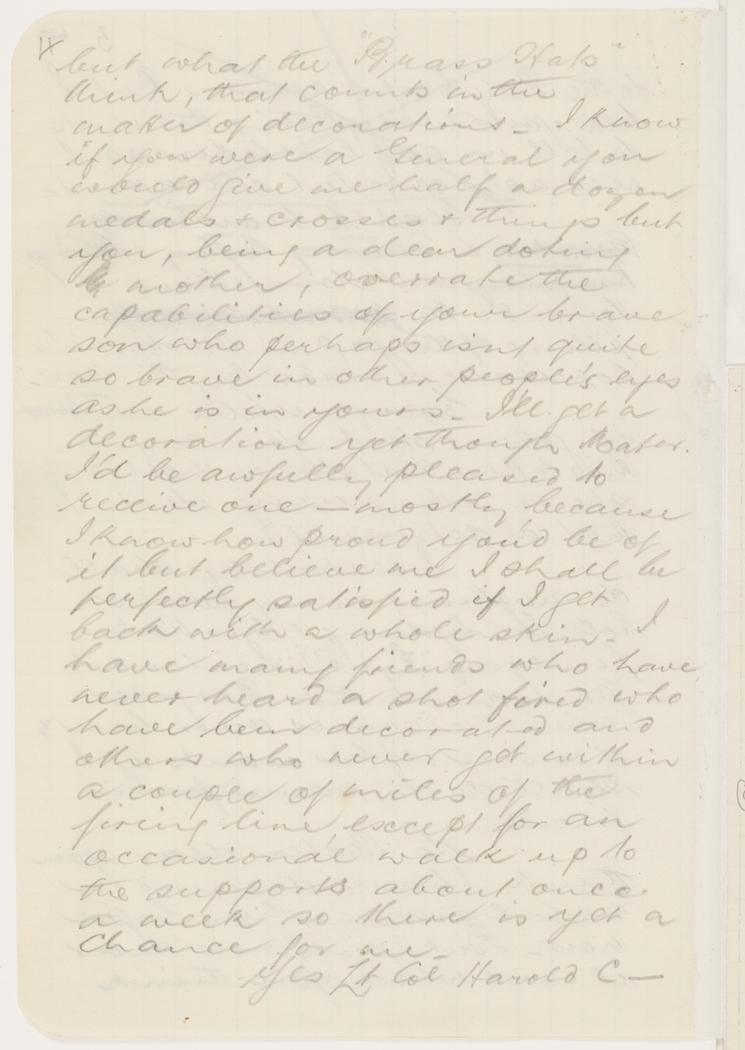 4
but what the "Brass Hats"
think, that counts in the
matter of decorations - I know
if you were a General you
would give me half a dozen
medals & crosses & things but
you, being a dear doting
mother, overrate the
capabilities of your brave
son who perhaps isnt quite
so brave in other people's eyes
as he is in yours - I'll get a
decoration yet though Mater.
I'd be awfully pleased to
receive one - mostly because
I know how proud you'd be of
it but believe me I shall be
perfectly satisfied if I get
back with a whole skin - I
have many friends who have
never heard a shot fired who
have been decorated and
others who never get within
a couple of miles of the
firing line, except for an
occasional walk up to
the supports about once
a week so there is yet a
chance for me -
Yes Lt Col Harold C —